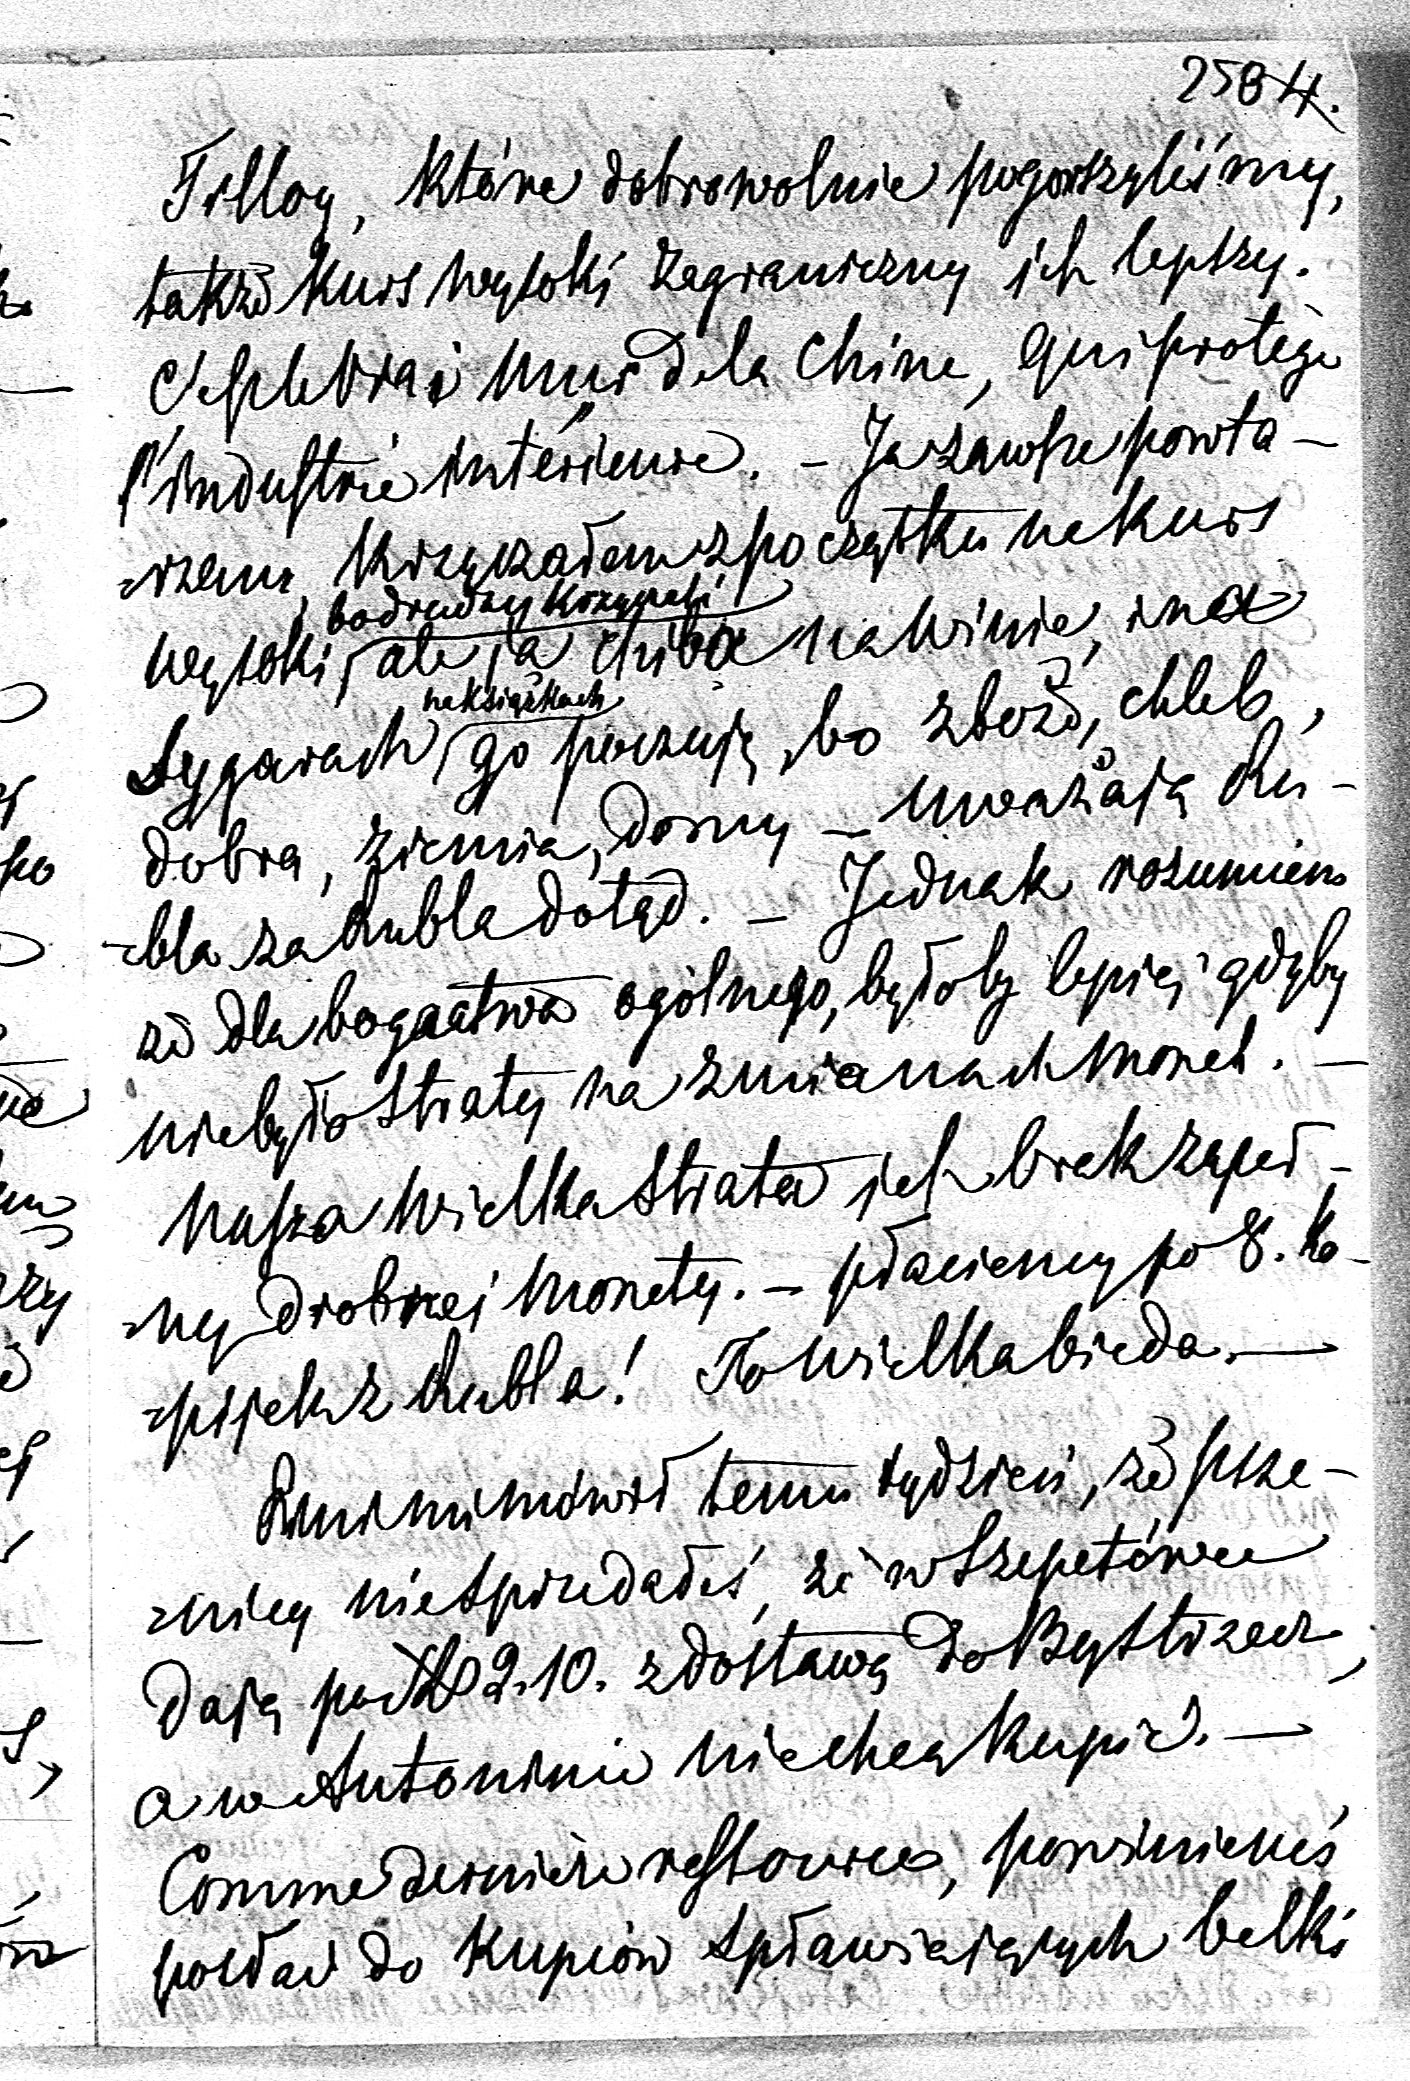 2584.
które dobrowolnie pogorszyliśmy,
także kurs wysoki zagraniczny ich lepszy.
C'est le vrai mur de la Chine, qui protège
l'industrie intérieure. – Ja zawsze powta-
-rzam, krzyczałem z początku na kurs
bo drudzy krzyczeli
wysoki, ale ja chiba na winie, i na
na książkach
Sygarach, go poczuję, bo zboże, chleb,
dobra, ziemia, domy – uważają Ru-
-bla za Rubla dotąd. – Jednak rozumiem
że dla bogactwa ogólnego, byłoby lepiej gdyby
niebyło straty na zmianach monet. –
Nasza wielka strata jest brak zupeł-
-ny drobnej monety. – płaciemy po 8. Ko-
-pijek z Rubla! To wielka bieda. –
mi mówił temu tydzień, że psze-
-nicy niesprzedałeś, że w Szepetówce
dają po 2.10. z dostawą do Bystrzec,
a w Antoninie niechcą kupić. –
Comme dernière ressource, powinieneś
posłać do kupców spławiających belki